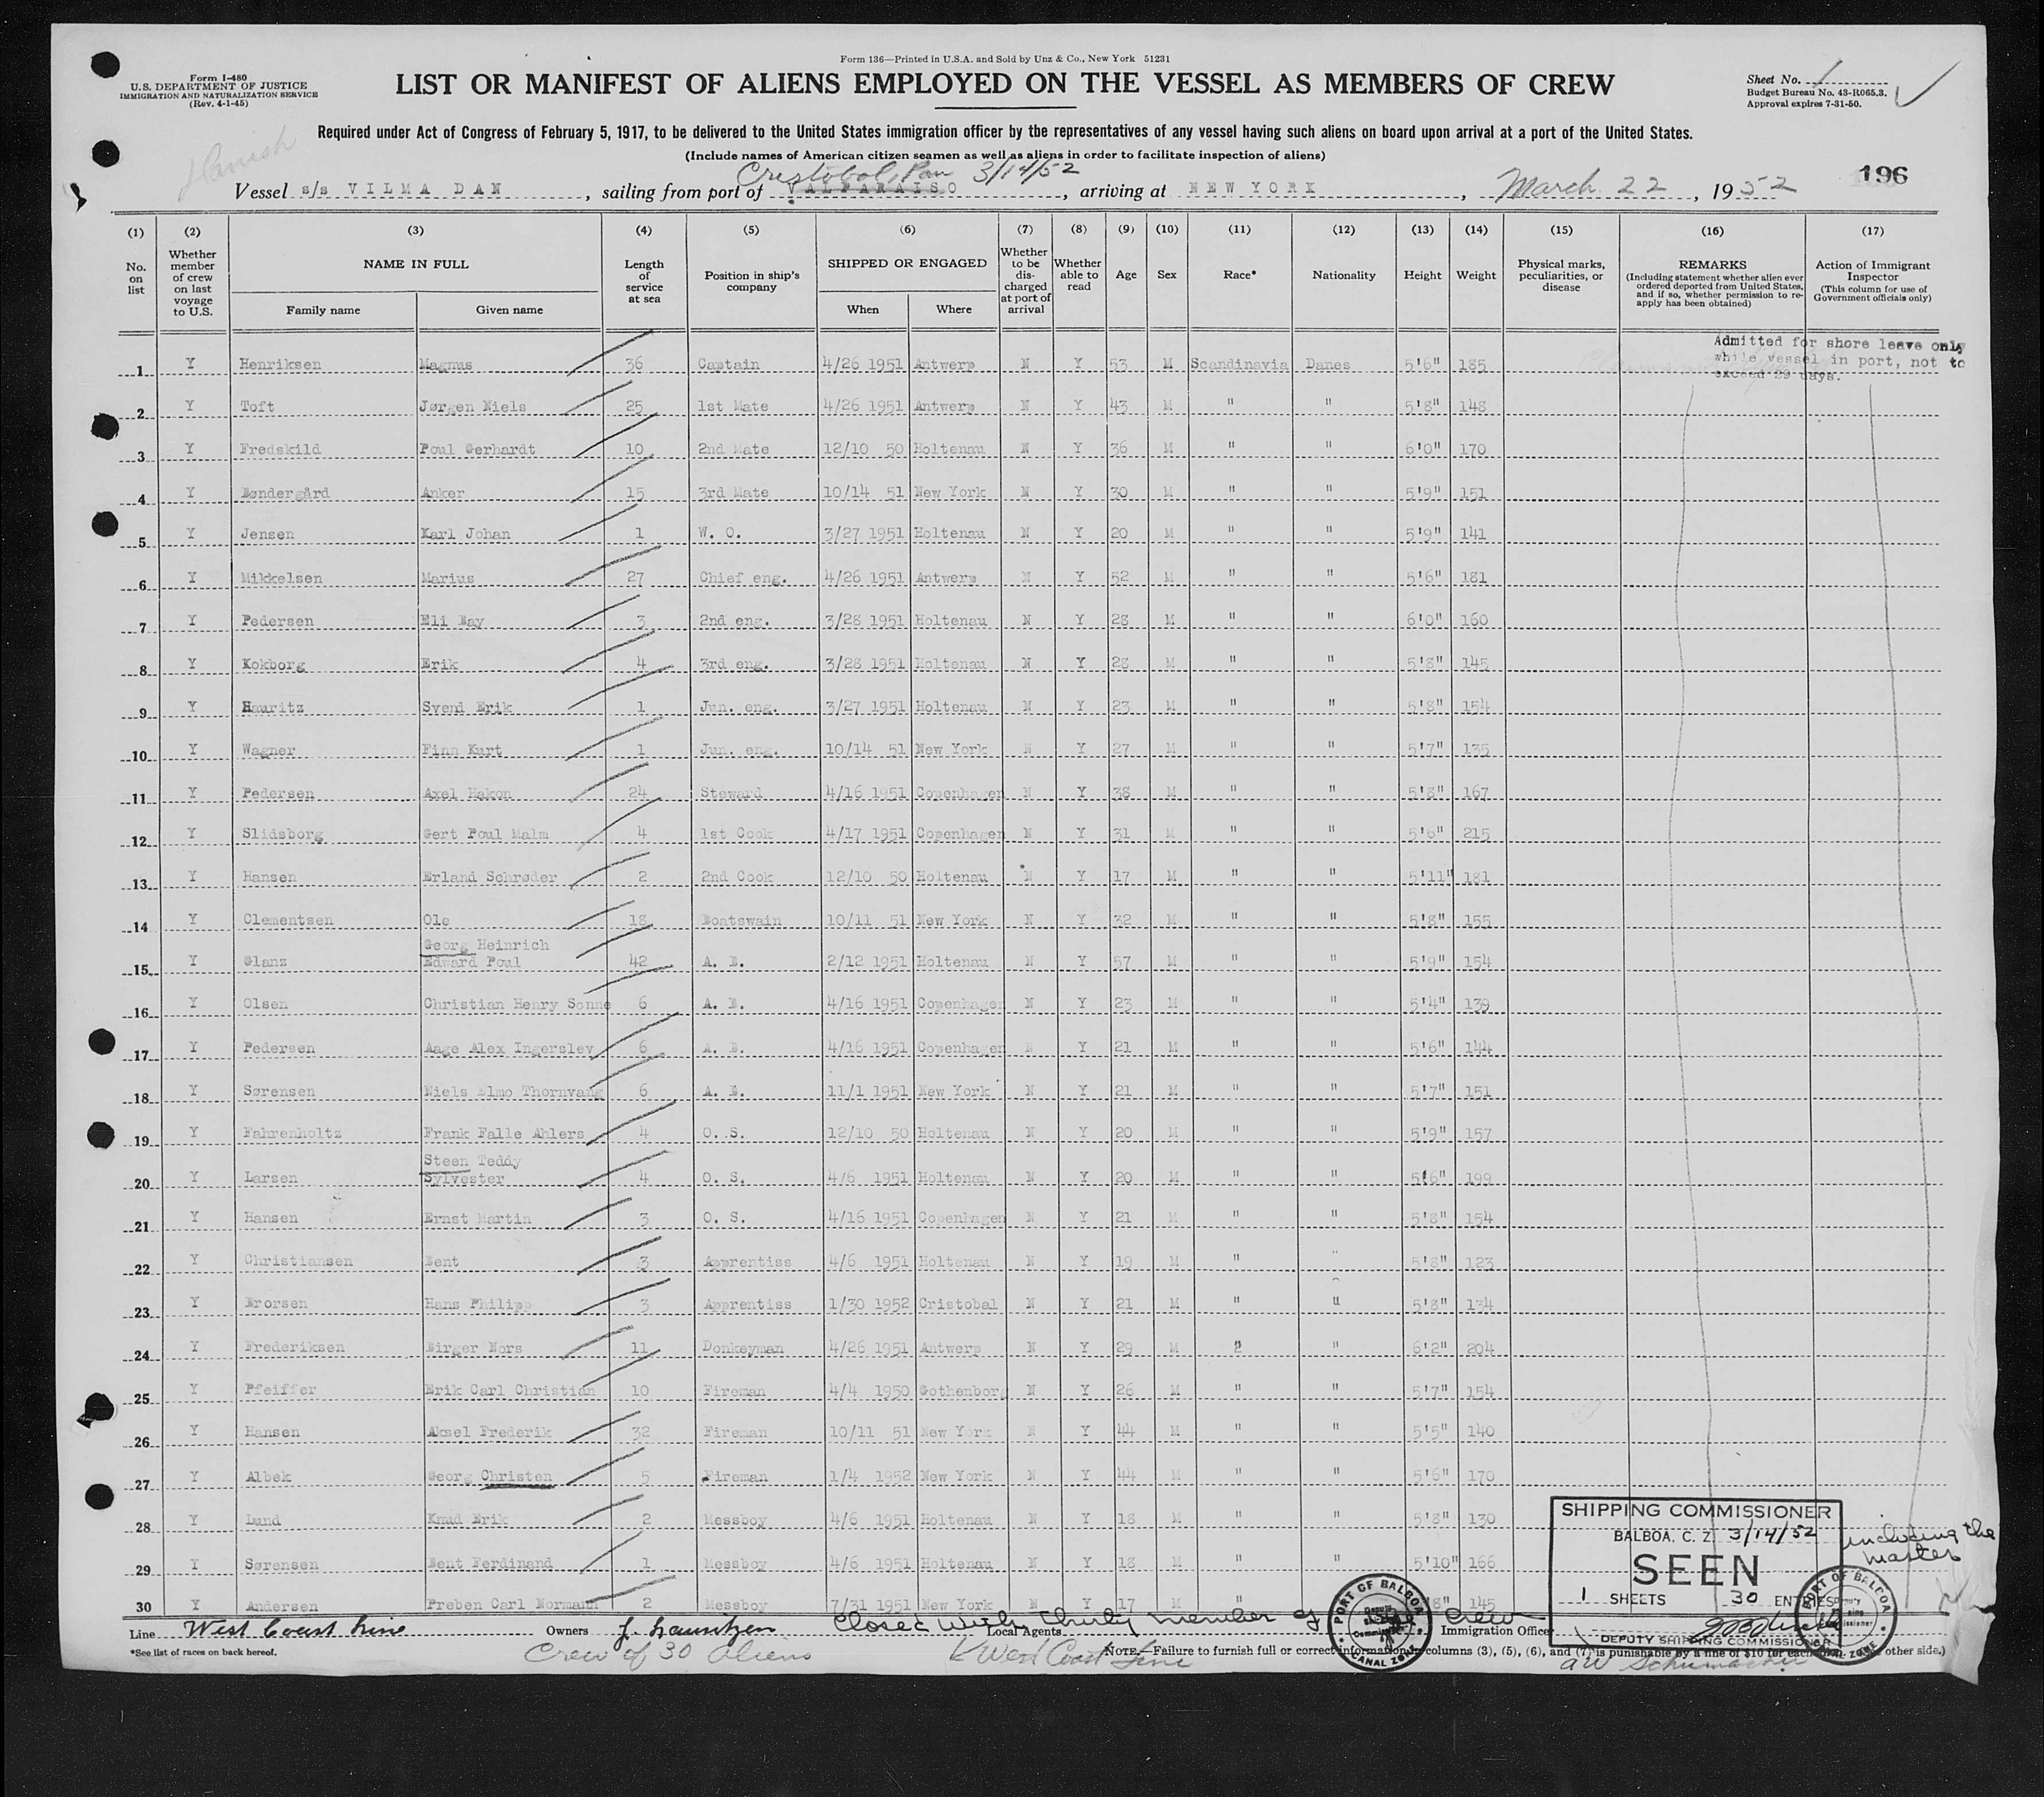 Form 136—Printed in U.S.A. and Sold by Unz & Co., New York 51231
Form I-480
U.S. DEPARTMENT OF JUSTICE
IMMIGRATION AND NATURALIZATION SERVICE
(Rev. 4-1-45)
LIST OR MANIFEST OF ALIENS EMPLOYED ON THE VESSEL AS MEMBERS OF CREW
Sheet No. 1
Budget Bureau No. 43-R065.3.
Approval expires 7-31-50.
Required under Act of Congress of February 5, 1917, to be delivered to the United States immigration officer by the representatives of any vessel having such aliens on board upon arrival at a port of the United States.
(Include names of American citizen seamen as well as aliens in order to facilitate inspection of aliens)
Cristobal, Pan 3/14/52
196
Vessel s/s VILMA DAN, sailing from port of VALPARAISO, arriving at NEW YORK, March 22, 1952
(1) No. on list
(2) Whether member of crew on last voyage to U.S.
(3) NAME IN FULL Family name Given name
(4) Length of service at sea
(5) Position in ship's company
(6) SHIPPED OR ENGAGED When Where
(7) Whether to be discharged at port of arrival
(8) Whether able to read
(9) Age
(10) Sex
(11) Race*
(12) Nationality
(13) Height
(14) Weight
(15) Physical marks, peculiarities, or disease
(16) REMARKS (Including statement whether alien ever ordered deported from United States, and if so, whether permission to re-apply has been obtained)
(17) Action of Immigrant Inspector (This column for use of Government officials only)
Admitted for shore leave only
while vessel in port, not to
exceed 29 days.
1 Y Henriksen Magnus 36 Captain 4/26 1951 Antwerp N Y 53 M Scandinavia Danes 5'6" 185
2 Y Toft Jørgen Niels 25 1st Mate 4/26 1951 Antwerp N Y 43 M " " 5'8" 148
3 Y Fredskild Poul Gerhardt 10 2nd Mate 12/10 50 Holtenau N Y 36 M " " 6'0" 170
4 Y Bøndergård Anker 15 3rd Mate 10/14 51 New York N Y 30 M " " 5'9" 151
5 Y Jensen Karl Johan 1 W. O. 3/27 1951 Holtenau N Y 20 M " " 5'9" 141
6 Y Mikkelsen Marius 27 Chief eng. 4/26 1951 Antwerp N Y 52 M " " 5'6" 181
7 Y Pedersen Eli Bay 3 2nd eng. 3/28 1951 Holtenau N Y 28 M " " 6'0" 160
8 Y Kokborg Erik 4 3rd eng. 3/28 1951 Holtenau N Y 28 M " " 5'8" 145
9 Y Hauritz Svend Erik 1 Jun. eng. 3/27 1951 Holtenau N Y 23 M " " 5'8" 154
10 Y Wagner Finn Kurt 1 Jun. eng. 10/14 51 New York N Y 27 M " " 5'7" 135
11 Y Pedersen Axel Hakon 24 Steward 4/16 1951 Copenhagen N Y 38 M " " 5'8" 167
12 Y Slidsborg Gert Poul Malm 4 1st Cook 4/17 1951 Copenhagen N Y 31 M " " 5'6" 215
13 Y Hansen Erland Schrøder 2 2nd Cook 12/10 50 Holtenau N Y 17 M " " 5'11" 181
14 Y Clementsen Ole 18 Boatswain 10/11 51 New York N Y 32 M " " 5'8" 155
15 Y Glanz Georg Heinrich Edward Poul 42 A. B. 2/12 1951 Holtenau N Y 57 M " " 5'9" 154
16 Y Olsen Christian Henry Sonne 6 A. B. 4/16 1951 Copenhagen N Y 23 M " " 5'4" 139
17 Y Pedersen Aage Alex Ingerslev 6 A. B. 4/16 1951 Copenhagen N Y 21 M " " 5'6" 144
18 Y Sørensen Niels Elmo Thornvang 6 A. B. 11/1 1951 New York N Y 21 M " " 5'7" 151
19 Y Fahrenholtz Frank Falle Ahlers 4 O. S. 12/10 50 Holtenau N Y 20 M " " 5'9" 157
20 Y Larsen Steen Teddy Sylvester 4 O. S. 4/6 1951 Holtenau N Y 20 M " " 5'6" 199
21 Y Hansen Ernst Martin 3 O. S. 4/16 1951 Copenhagen N Y 21 M " " 5'8" 154
22 Y Christiansen Bent 3 Apprentiss 4/6 1951 Holtenau N Y 19 M " " 5'8" 123
23 Y Brorsen Hans Philipp 3 Apprentiss 1/30 1952 Cristobal N Y 21 M " " 5'8" 134
24 Y Frederiksen Birger Nors 11 Donkeyman 4/26 1951 Antwerp N Y 29 M " " 6'2" 204
25 Y Pfeiffer Erik Carl Christian 10 Fireman 4/4 1950 Gothenborg N Y 26 M " " 5'7" 154
26 Y Hansen Aksel Frederik 32 Fireman 10/11 51 New York N Y 44 M " " 5'5" 140
27 Y Albek Georg Christen 5 Fireman 1/4 1952 New York N Y 44 M " " 5'6" 170
28 Y Lund Knud Erik 2 Messboy 4/6 1951 Holtenau N Y 18 M " " 5'8" 130
29 Y Sørensen Bent Ferdinand 1 Messboy 4/6 1951 Holtenau N Y 18 M " " 5'10" 166
30 Y Andersen Preben Carl Normann 2 Messboy 7/31 1951 New York N Y 17 M " 8" 145
SHIPPING COMMISSIONER
BALBOA, C. Z. 3/14/52
SEEN
1 SHEETS 30 ENTRIES
DEPUTY SHIPPING COMMISSIONER
including the
master
PORT OF BALBOA
CANAL ZONE
Closed with thirty member of crew
Line West Coast Line Owners J. Lauritzen Local Agents West Coast Line Immigration Officer
Crew of 30 Aliens
*See list of races on back hereof.
NOTE—Failure to furnish full or correct information in columns (3), (5), (6), and (7) is punishable by a fine of $10 for each other side.)